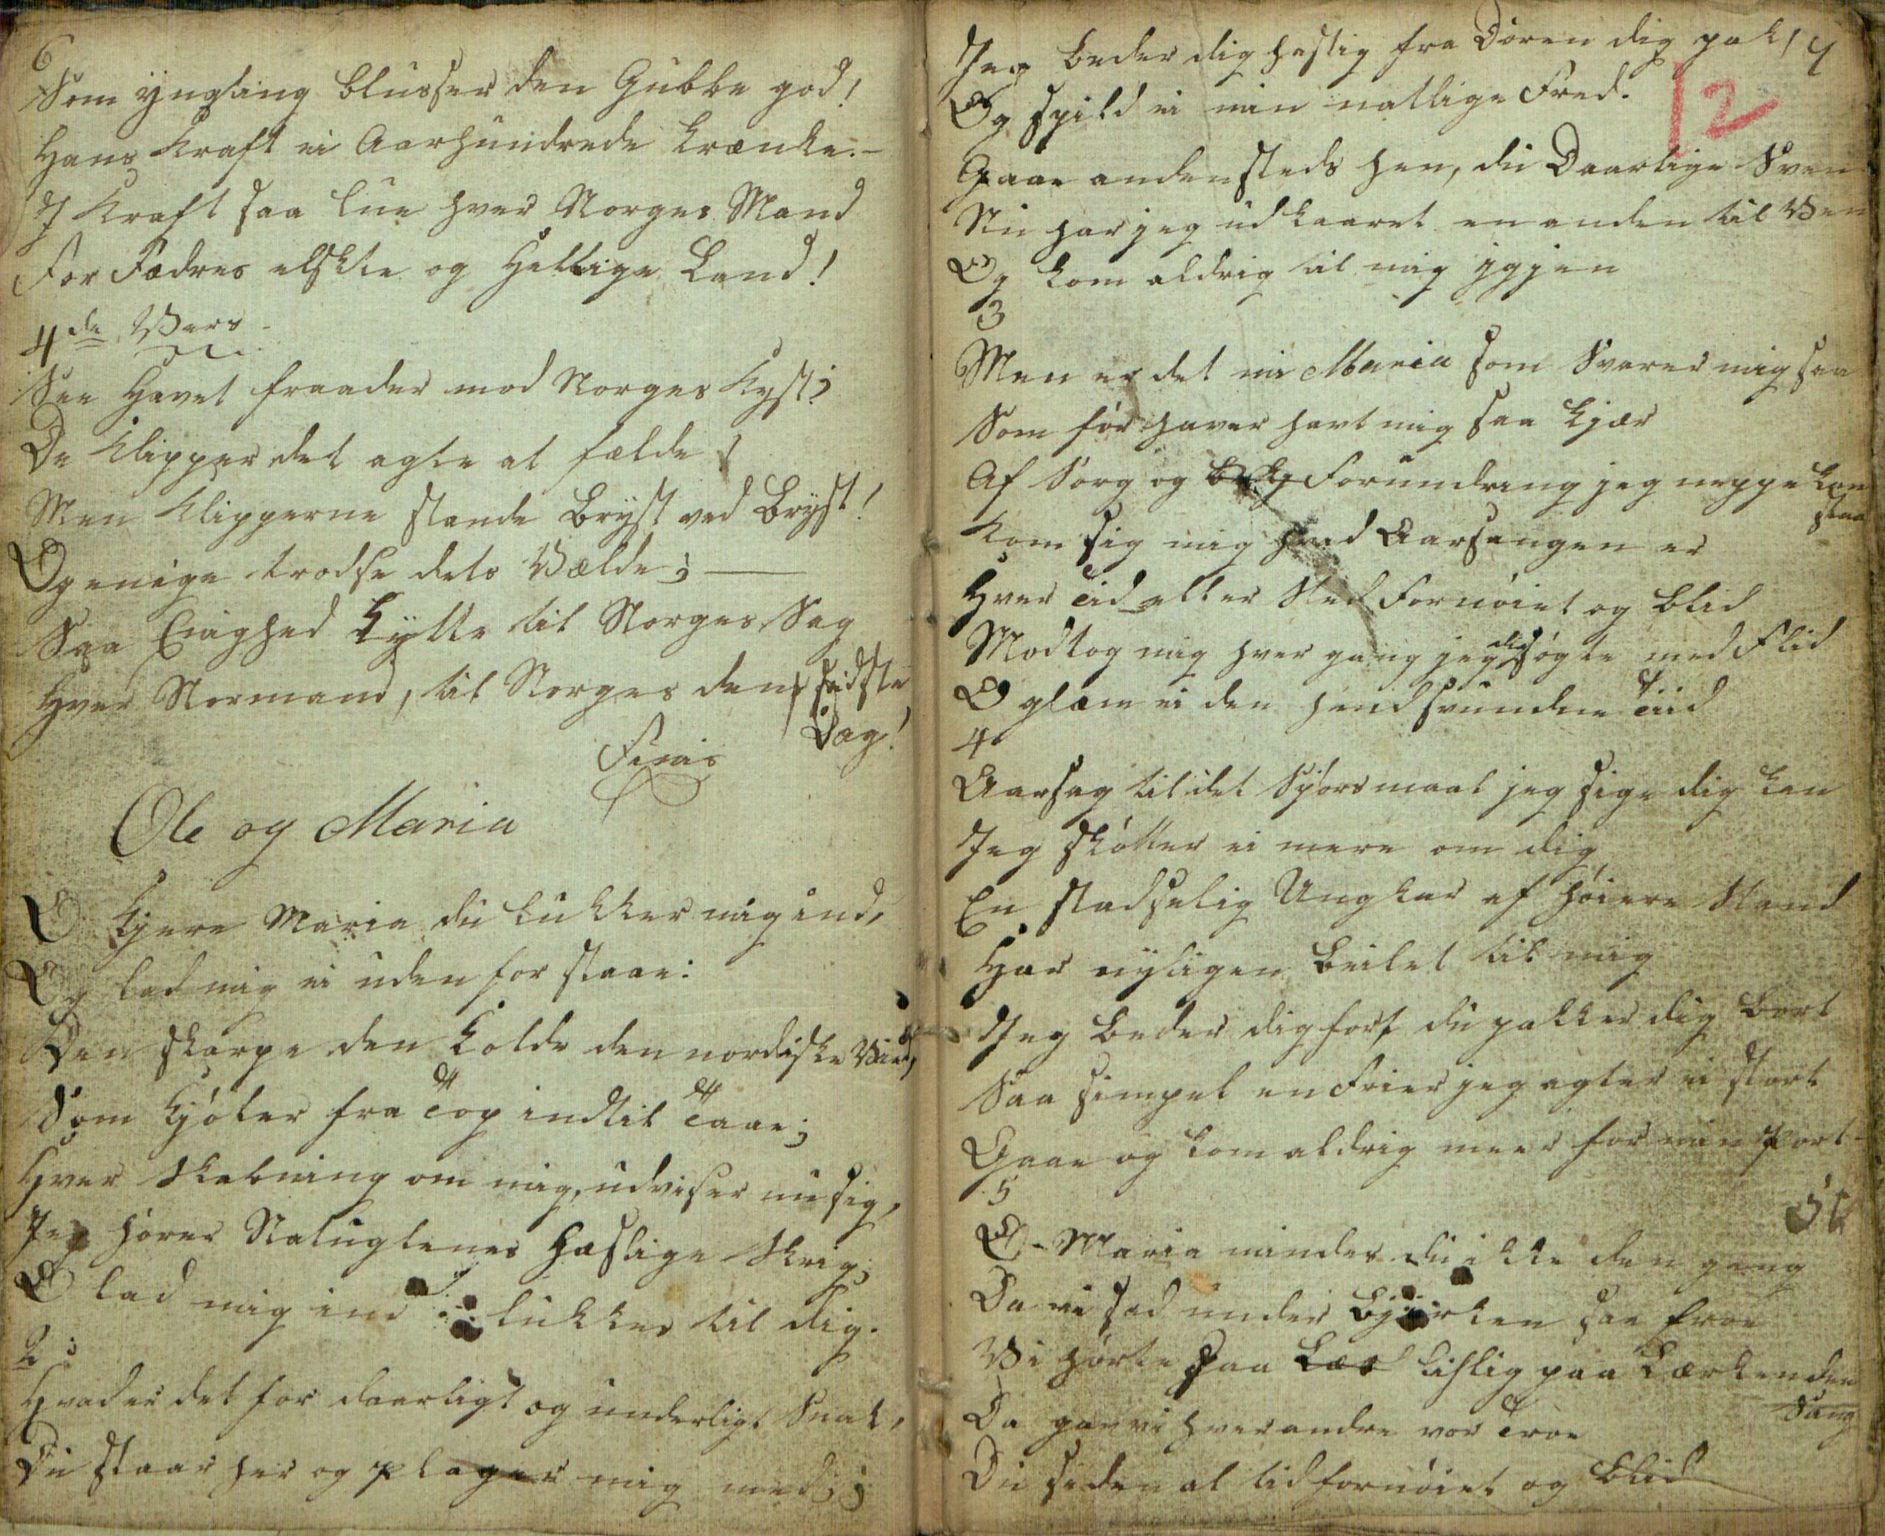 6
Som yngling blusser den Gubbe god!
Hans Kraft ei Aarhundrede krænke. –
I Kraft saa lue hver Norges Mand
For Fædres elskte og Hellige Land!
4de Vers
See Havet fraader mod Norges Kyst;
De Klipper det agte at fælde
Men Klipperne stande Bryst ved Bryst!
Og enige trodse dets Vælde; —
Saa Enighed Kytte til Norges Sag
Hver Normand, til Norges den sidste
Dag!
Finis
Ole og Maria
O Kjere Maria du lukker mig ind,
Og lad mig ei uden for staae:
Den skarpe den Kolde den nordiske Vind,
Som Kjøler fra Top indtil Taae;
Hver Skabning om mig, udviser nu sig,
Jeg hører Natuglenes Hæslige Skrig;
O lad mig ind lukkes til dig.
2:
Hvad er det for daarligt og underligt Snak,
Du staar her og plager mig med;
Jeg beder dig hastig fra Døren dig pak,
7
12
Og spild ei min natlige Fred.
Gaae andensteds hen, du Daarlige Sven
Nu har jeg udkaaret en anden til Ven
Og kom aldrig til mig iggjen
3
Men er det nu Maria som Svarer mig saa
Som før haver havt mig saa kjær
Af Sorg og Forundring jeg neppe kan
staa
Kom sig mig hvad Aarsagen er
Hver Tid eller Sted Fornøiet og blid
Modtog mig hver gang jeg dig søgte med Flid
O glæm ei den hendsvundne Tiid
4
Aarsag til det Spørsmaal jeg sige dig kan
Jeg skøtter ei mere om dig
En stadselig Ungkar af høiere Stand
Har nyligen beilet til mig
Jeg beder dig fort, du pakker dig bort
Saa simpel en Frier jeg agter ei stort
Gaae og kom aldrig meer for min Port
5
O Maria minder du ikke den gang
Da vi sad under Bjørken saa froe
Vi hørte saa Læs lislig paa Lærkenden
Sang
Da gav vi hverandre vor Troe
Du siden al tid fornøiet og blid